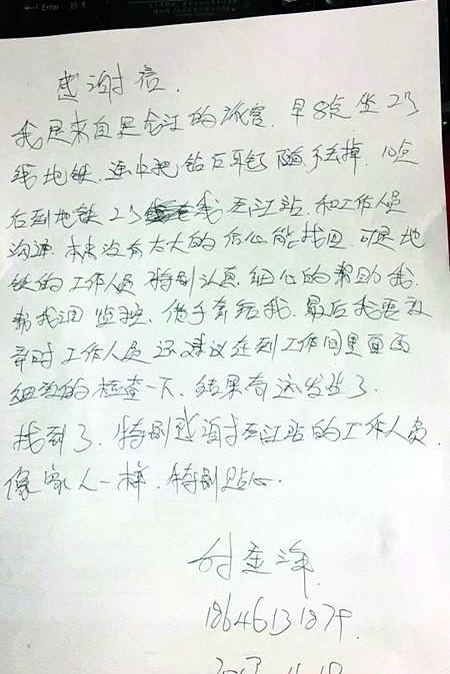 感谢信.
我是来自黑龙江的旅客. 早8点坐2号
线地铁. 途中把钻石耳钉随手丢掉. 10点
后到地铁2号线天江站. 和工作人员
沟通. 本来没有太大的信心能找回. 可是地
铁的工作人员 特别认真. 细心的帮助我.
帮我调监控. 借手套给我. 最后我要放
弃时 工作人员还建议在到工作间里面再
细致的检查一下. 结果奇迹发生了.
找到了. 特别感谢 江站的工作人员.
像家人一样. 特别贴心.
18646131879.